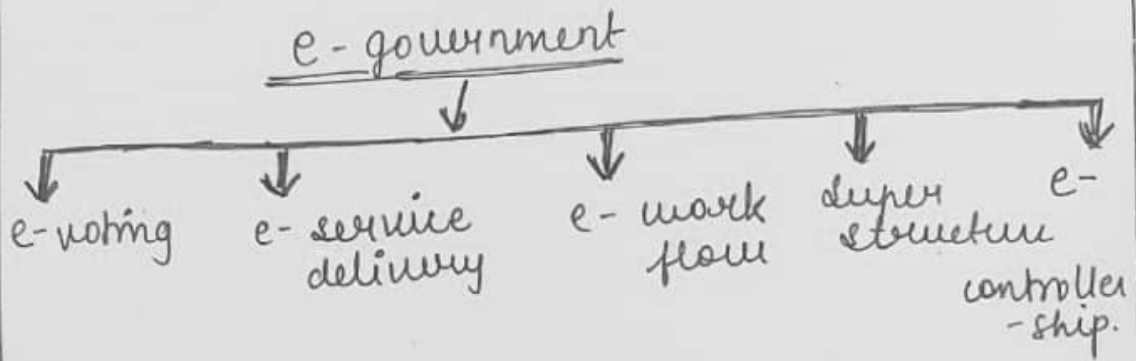 e - government
e-voting
e- service
delivery
e- work
flow
super
structure
e-
controller
-ship.